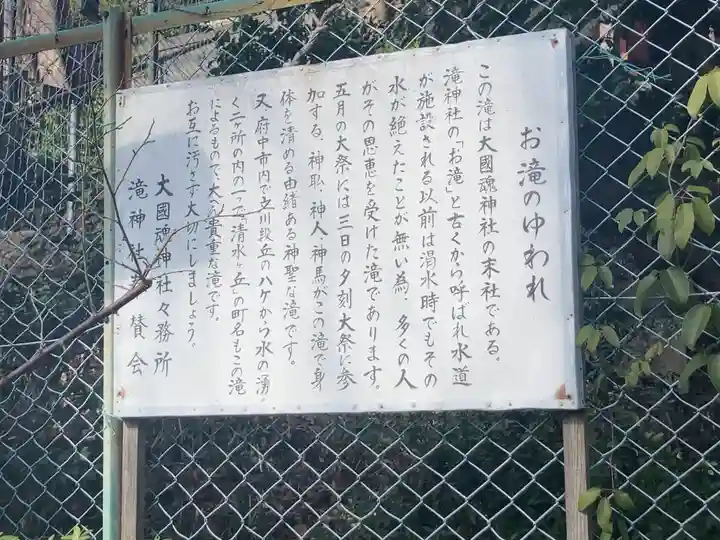 お滝のゆわれ
この滝は大國魂神社の末社である。
滝神社の「お滝」と古くから呼ばれ水道
が施設される以前は渇水時でもその
水が絶えたことが無い為 多くの人
がその恩恵を受けた滝であります。
五月の大祭には三日の夕刻大祭に参
加する、神職、神人神馬がこの滝で身
体を清める由緒ある神聖な滝です。
又府中市内で立川段丘のハケから水の湧
く二ヶ所の内の一つで清水ヶ丘の町名もこの滝
によるもので大へん貴重な滝です。
お互に汚さず大切にしましょう。
大國魂神社々務所
滝神社 賛会